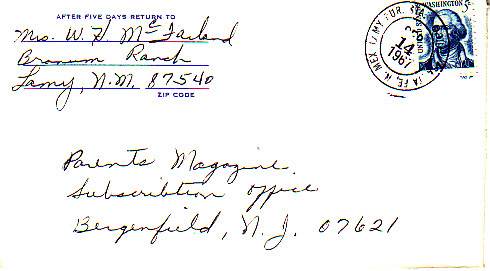 AFTER FIVE DAYS RETURN TO
Mrs. W. H. McFarland
Branum Ranch
Lamy, N.M. 87540
ZIP CODE
WASHINGTON 5
N. MEX
14
1967
Parents Magazine
Subscribtion Office
Bergenfield, N.J. 07621